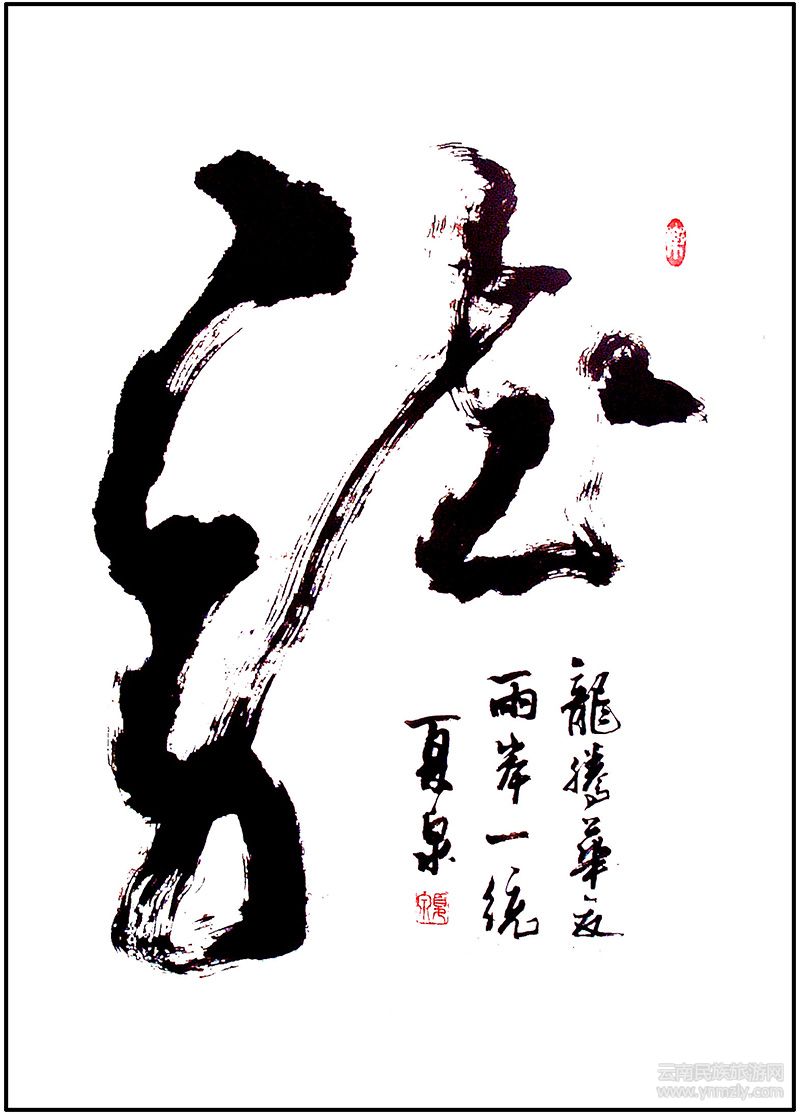 龍
龍騰華夏
兩岸一統
夏泉
云南民族旅游网
www.ynmzly.com